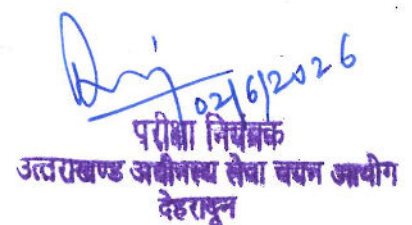 02/6/2026
परीक्षा नियंत्रक
उत्तराखण्ड अधीनस्थ सेवा चयन आयोग
देहरादून